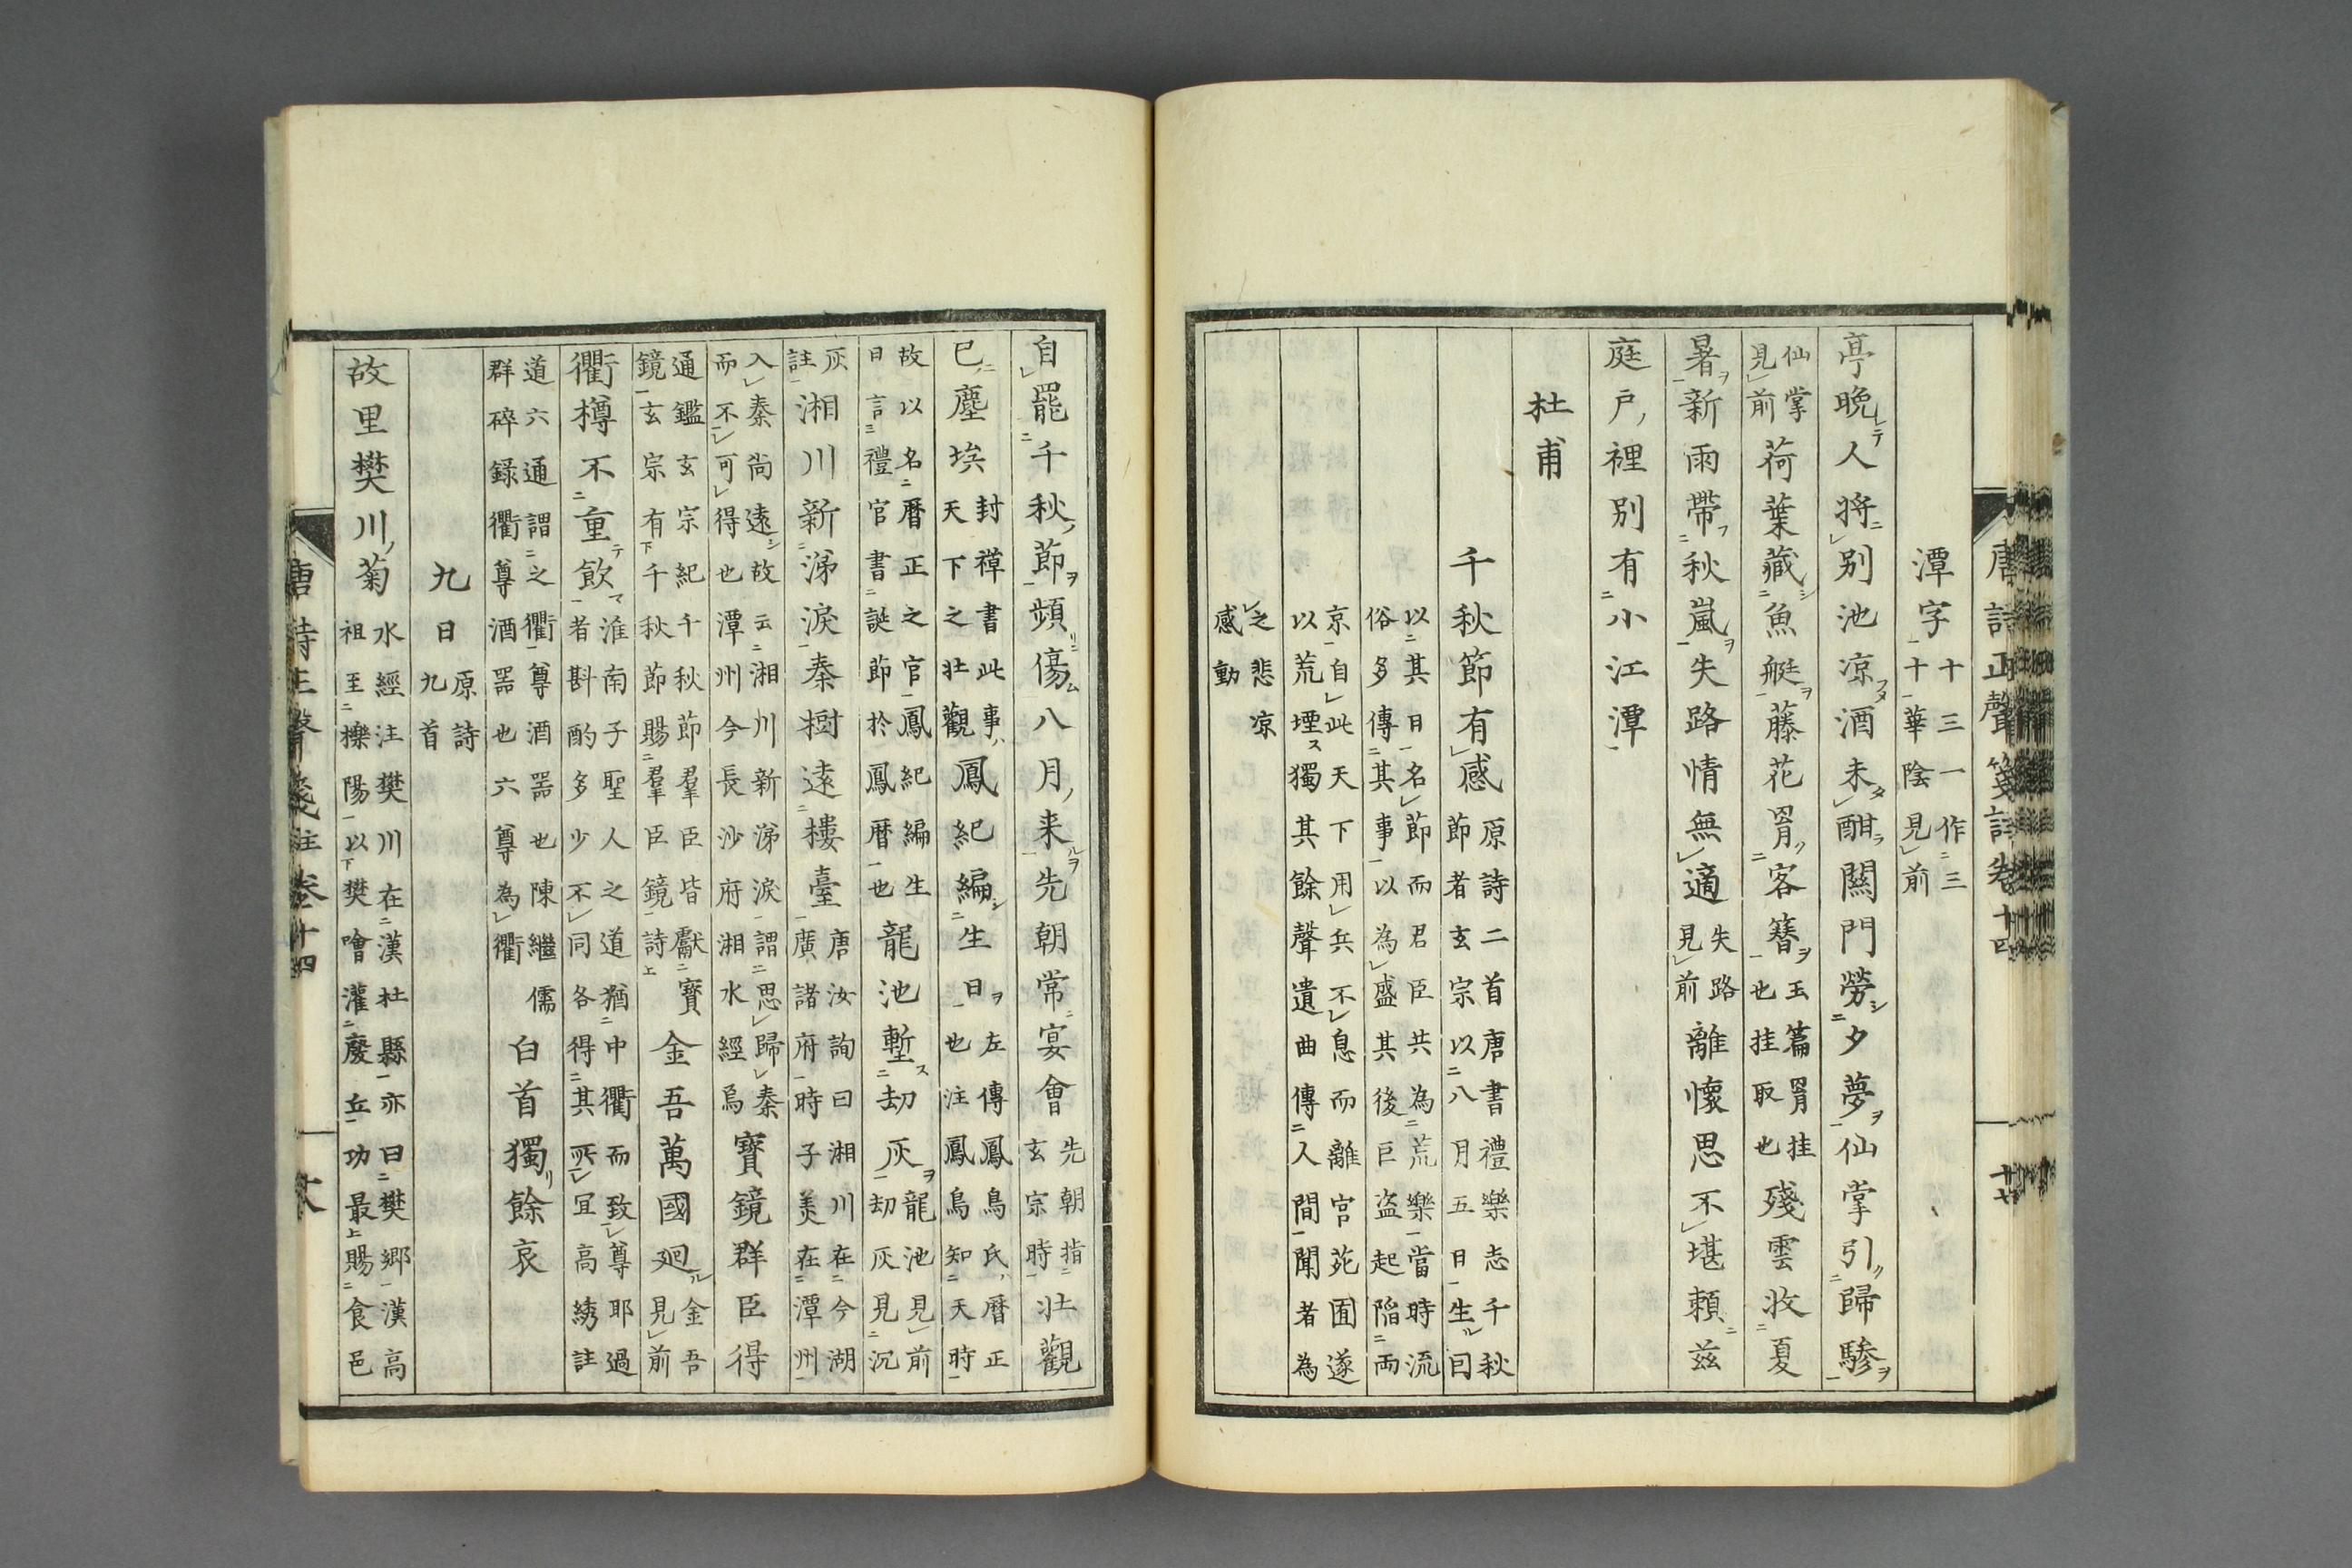 唐詩正聲箋註卷十四 廿七
潭字十三一作三十華陰見前
亭晩人將別池凉酒未酣關門勞夕夢仙掌引歸驂
仙掌見前荷葉藏魚艇藤花罥客簪玉篇罥挂也挂取也殘雲收夏
暑新雨帶秋嵐失路情無適失路見前離懷思不堪頼茲
庭戸裡別有小江潭
杜甫
千秋節有感原詩二首唐書禮樂志千秋節者玄宗以八月五日生因
以其日名節而君臣共為荒樂當時流俗多傳其事以為盛其後巨盗起陷両
京自此天下用兵不息而離宮苑囿遂以荒堙獨其餘聲遺曲傳人間聞者為
之悲凉感動
自罷千秋節頻傷八月来先朝常宴會先朝指玄宗時壯觀
已塵埃封禅書此事天下之壯觀鳳紀編生日左傳鳳鳥氏暦正也注鳳鳥知天時
故以名暦正之官鳳紀編生日言禮官書誕節於鳳暦也龍池塹劫灰龍池見前劫灰見沉
灰註湘川新涕淚秦樹遠樓臺唐汝詢曰湘川在今湖廣諸府時子美在潭州
入秦尚遠故云湘川新涕淚謂思歸秦而不可得也潭州今長沙府湘水經焉寳鏡群臣得
通鑑玄宗紀千秋節羣臣皆獻寳鏡玄宗有千秋節賜羣臣鏡詩金吾萬國廻金吾見前
衢樽不重飲淮南子聖人之道猶中衢而致尊耶過者斟酌多少不同各得其所宜高綉註
道六通謂之衢尊酒噐也陳繼儒群碎録衢尊酒噐也六尊為衢白首獨餘哀
九日原詩九首
故里樊川菊水經注樊川在漢杜縣亦曰樊郷漢高祖至櫟陽以樊噲灌廢丘功最賜食邑
唐詩正聲箋註卷十四 廿八